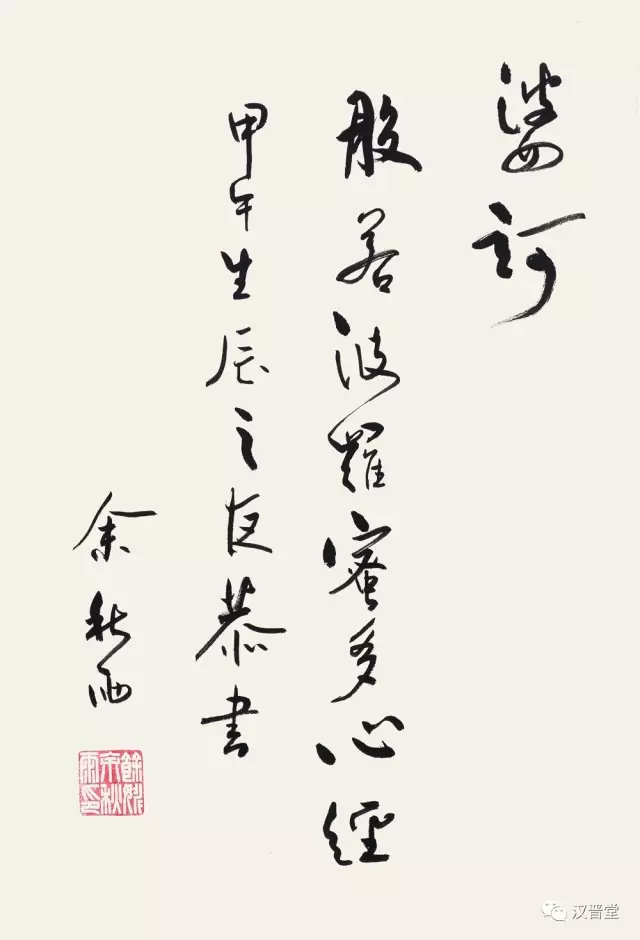 婆訶
般若波羅蜜多心經
甲午生辰之夜恭書
余秋雨
汉晋堂